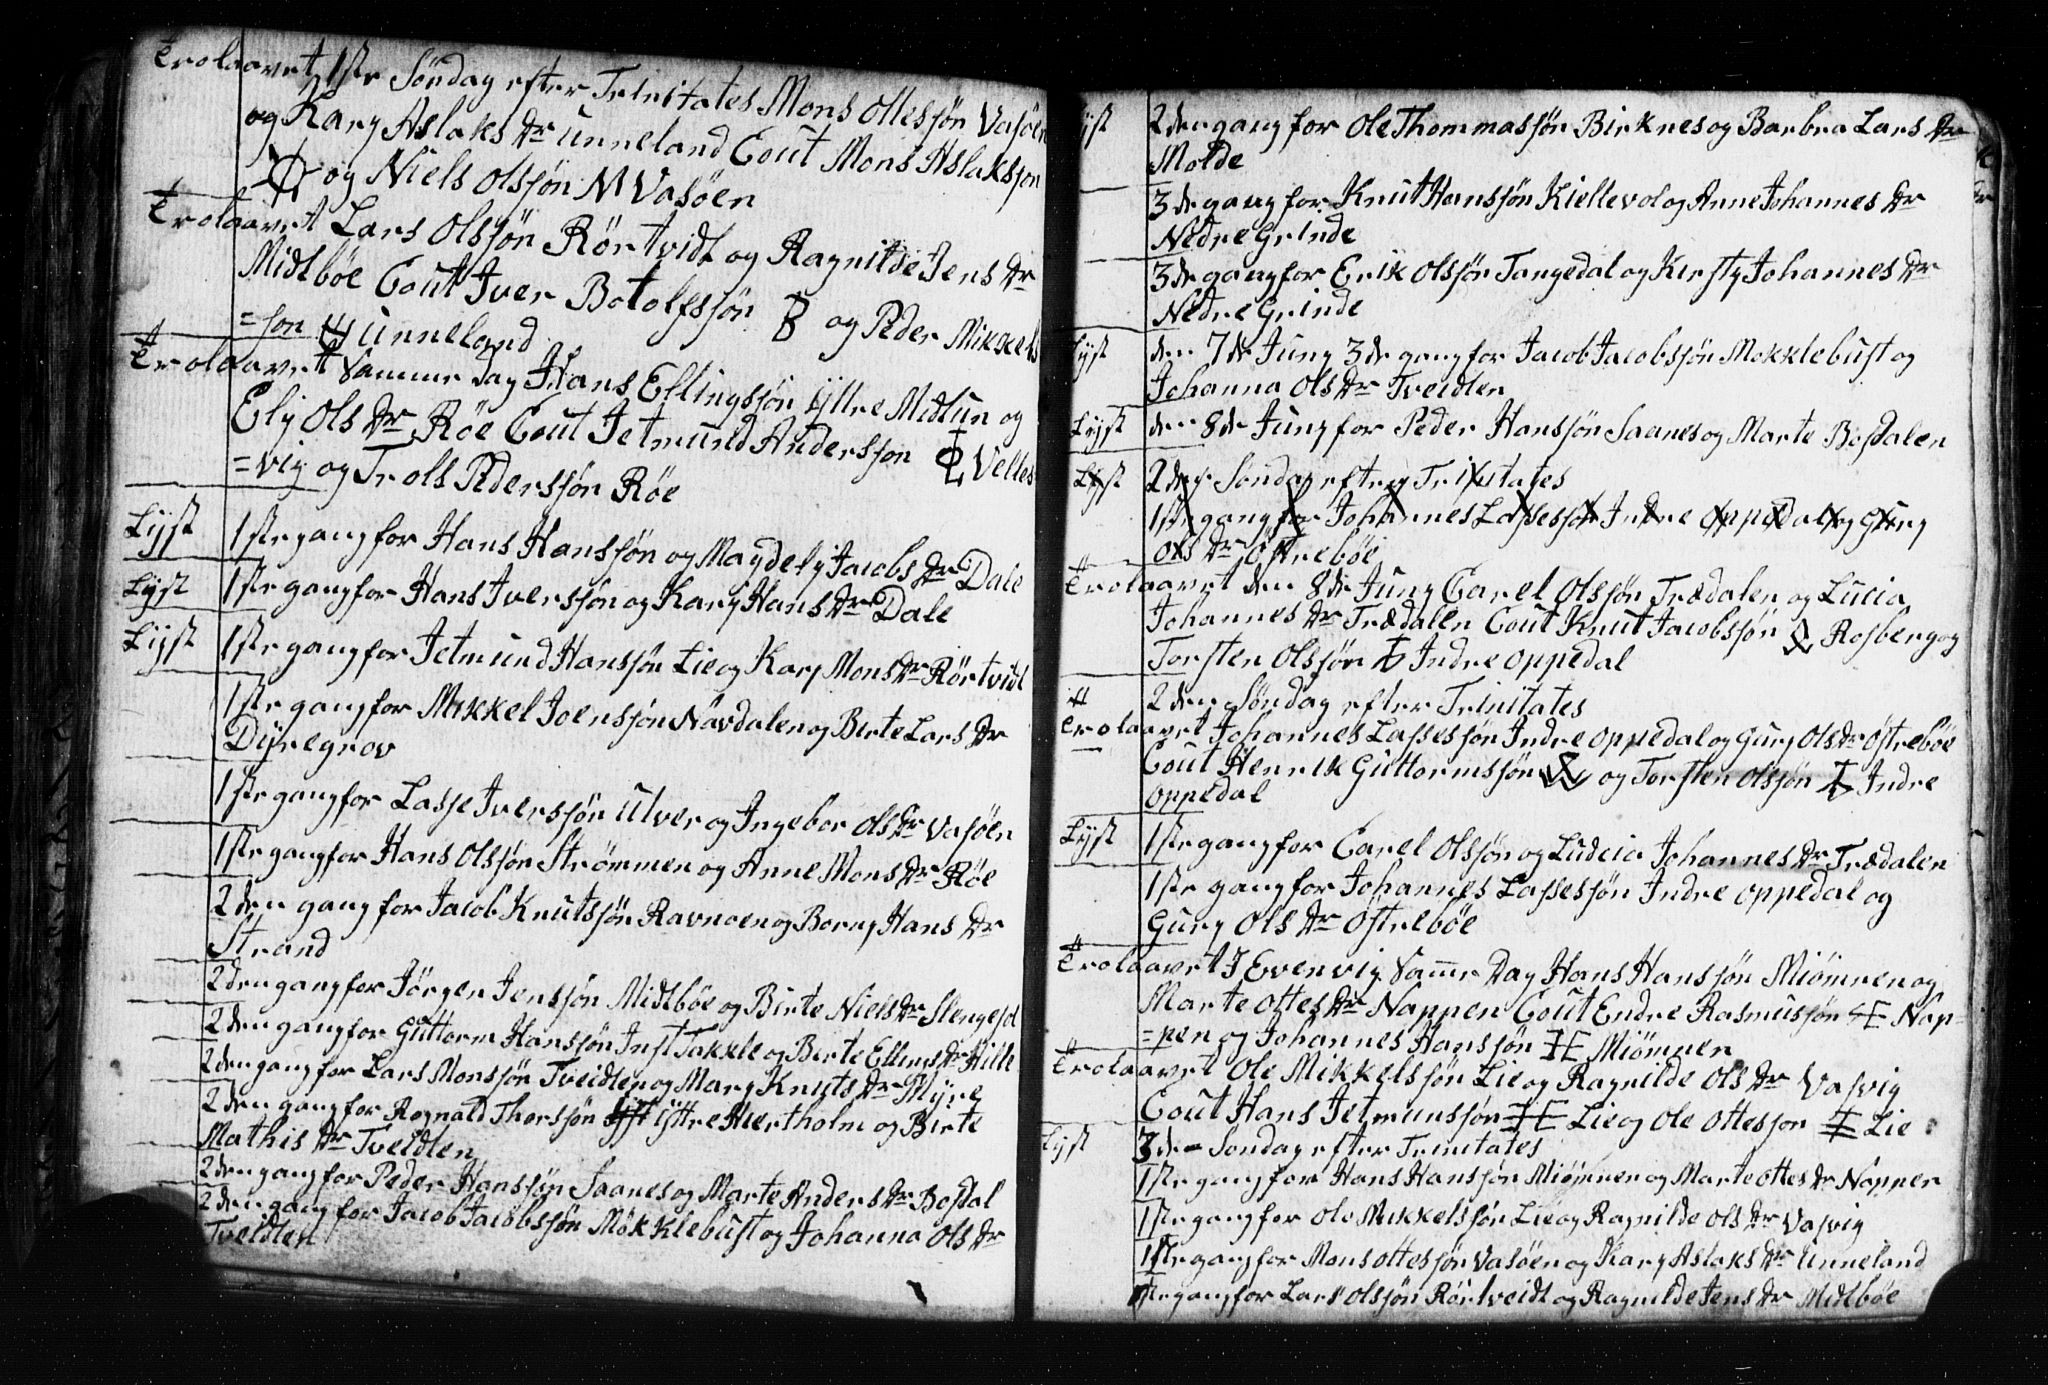 Trolaavet 1ste Söndag efter Trinitates Mons Ottesjön Vasöen
og Kary Aslaks Dr unneland Cout Mons Aslaksjon
og Niels Olsjön M Vasöen
Trolaavet Lars Olsjön Rörtvidt og Ragnilde Jens Dr
Midtböe Cout Iver Botolfsjön B og Peder Mikkels
=son unneland
Trolaavet Samme Dag Hans Ellingsjön yttre Midtun og
Ely Ols Dr Röe Cout Jetmund Andersjon Velles
=vig og Trols Pedersjön Röe
Lyst 1ste gang for Hans Hansjön og Magdely Jacobs Dr Dale
Lyst 1ste gang for Hans Iversjön og Kary Hans Dr Dale
Lyst 1ste gang for Jetmund Hansjön Lie og Kary Mons Dr Rörtvidt
1ste gang for Mikkel Joensjön Nävdalen og Birte Lars Dr
Dyregrov
1ste gang for Lasse Iversjön Ulver og Ingebor Ols Dr Vasöen
1ste gang for Hans Olsjön Strömmen og Anne Mons Dr Röe
2den gang for Jacob Knutsjön Ravnoen og Borny Hans Dr
Strand
2den gang for Jörgen Jensjön Midtböe og Birte Niels Dr Slengesol
2den gang for Guttorm Hansjön Inst Takkle og Birte Ellens Dr
2den gang for Lars Monsjön Tveidten og Mary Knuts Dr Myre
2den gang for Rognald Thorsjön yttre Hiertholm og Birte
Mathis Dr Tveidten
2den gang for Peder Hansjön Saanes og Marte Anders Dr Bosdal
2den gang for Jacob Jacobsjön Mökklebust og Johanna Ols Dr
Tveidten
Lyst 2den gang for Ole Thommasjön Birknes og Barbra Lars Dr
Molde
3de gang for Knut Hansjön Kiellevol og Anne Johannes Dr
Nedre Grinde
3de gang for Erik Olsjön Tangedal og Kirsty Johannes Dr
Nedre Grinde
Lyst den 7de Juny 3de gang for Jacob Jacobsjön Mokklebust og
Johanna Ols Dr Tveidten
Lyst den 8de Juny for Peder Hansjön Saanes og Marte Bosdalen
Lyst 2den Söndag efter Trinitates
1ste gang for Johannes Lassesjön Indre Oppedal og Gury
Ols Dr Östreböe
Trolaavet den 8de Juny Carel Olsjön Trædalen og Lucia
Johannes Dr Trædalen Cout Knut Jacobsjön Rosberg og
Torsten Olsjön Indre Oppedal
2den Söndag efter Trinitates
Trolaavet Johannes Lassesjön Indre Oppedal og Gury Ols Dr Östreböe
Cout Henrik Guttormsjön og Torsten Olsjön Indre
Oppedal
Lyst 1ste gang for Carel Olsjön og Ludcia Johannes Dr Trædalen
1ste gang for Johannes Lassesjön Indre Oppedal og
Gury Ols Dr Östreböe
Trolaavet I Evenvig Samme Dag Hans Hansjön Miömnen og
Marte Ottes Dr Nappen Cout Endre Rasmusjön Nap-
=pen og Johannes Hansjön Miömnen
Trolaavet Ole Mikkelsjön Lie og Ragnilde Ols Dr Vasvig
Cout Hans Jetmunsjön Lie og Ole Ottesjon Lie
Lyst 3de Söndag efter Trinitates
1ste gang for Hans Hansjön Miömnen og Marte Ottes Dr Nappen
1ste gang for Ole Mikkelsjön Lie og Ragnilde Ols Dr Vasvig
1ste gang for Mons Ottesjön Vasöen og Kary Aslaks Dr Unneland
1ste gang for Lars Olsjön Rörtveidt og Ragnilde Jens Dr Midtböe